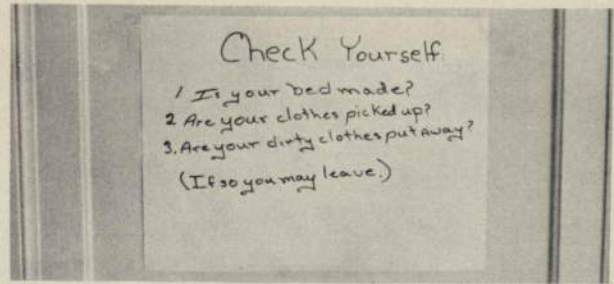 Check Yourself.
1 Is your bed made?
2 Are your clothes picked up?
3. Are your dirty clothes put away?
(If so you may leave.)